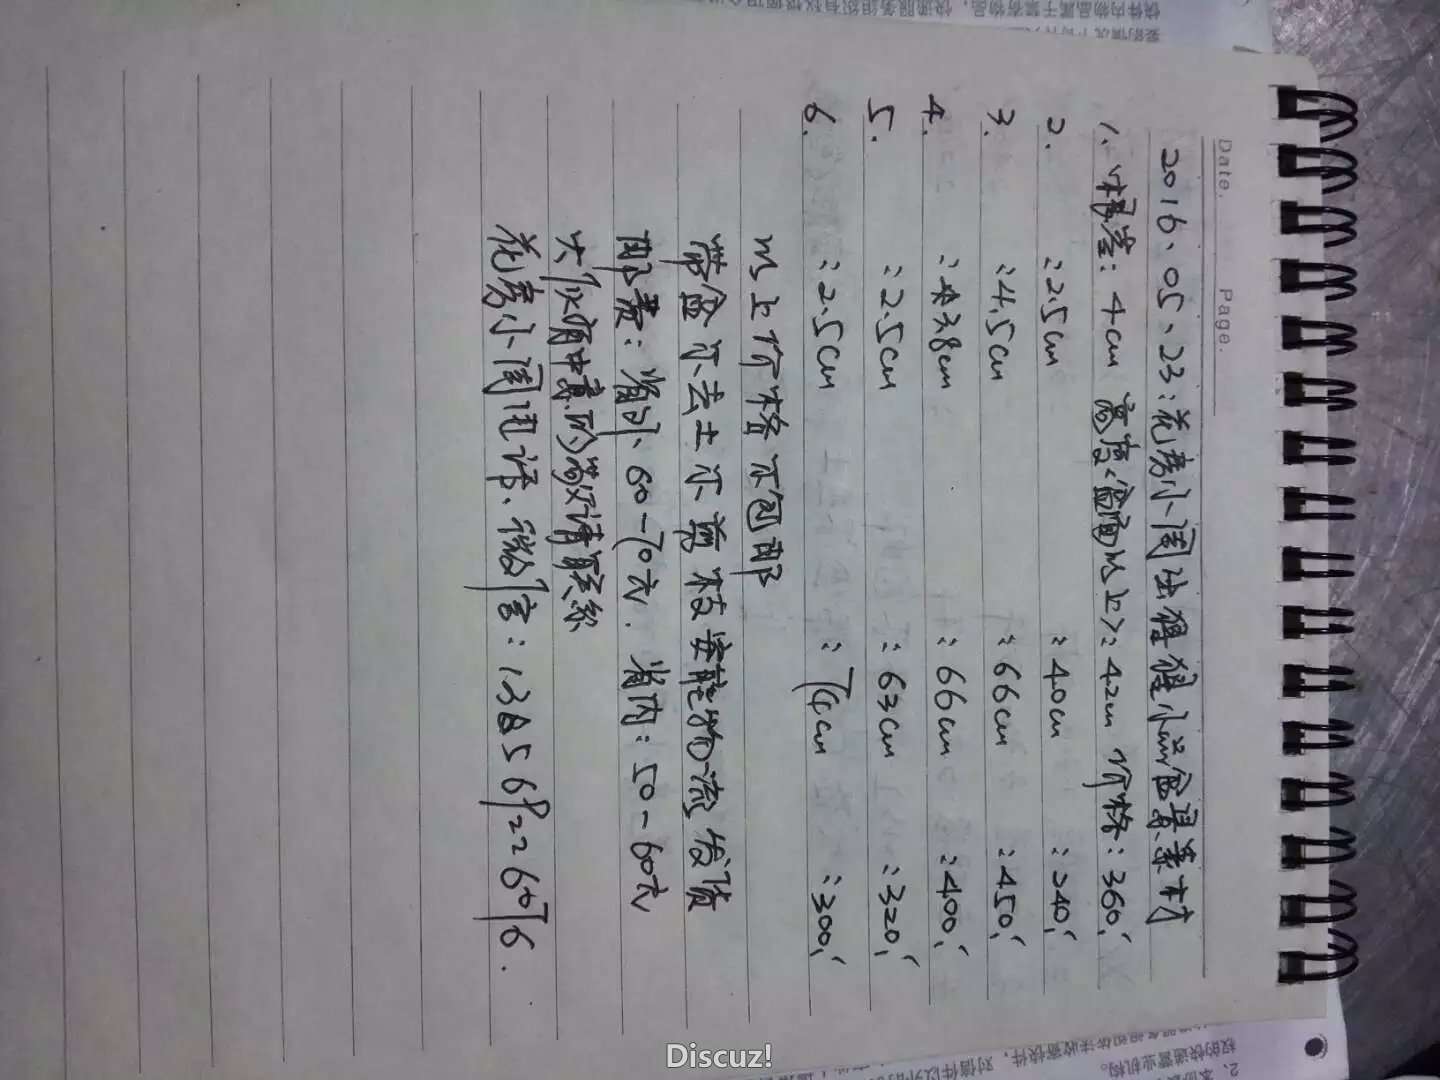 Date. Page.
2016、05、23：花房小周出猩猩小品盆景素材
1、杆径：4cm 高度<盆面以上>：42cm 价格：360,
2. ：2.5cm ：40cm ：240,
3. ：4.5cm ：66cm ：450,
4. ：3.8cm ：66cm ：400,
5. ：2.5cm ：63cm ：320,
6. ：2.5cm ：74cm ：300,
以上价格不包邮
带盆不去土不剪枝安能物流发货
邮费：省外、60-70元. 省内：50-60元
大们有中意的喜欢请联系
花房小周电话、微信：13856922676.
Discuz!